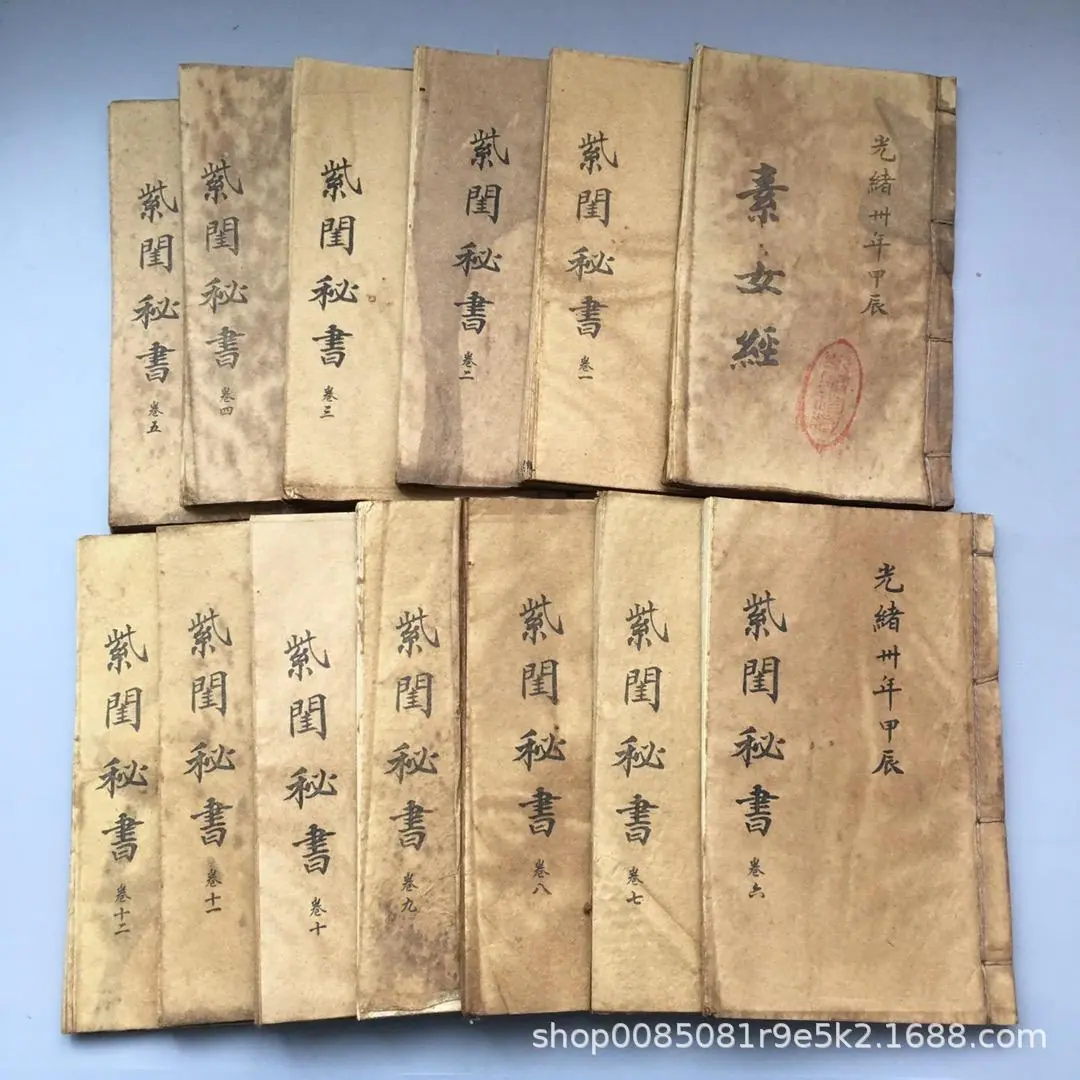 光緒卅年甲辰
素女經
紫閨秘書 卷一
紫閨秘書 卷二
紫閨秘書 卷三
紫閨秘書 卷四
紫閨秘書 卷五
光緒卅年甲辰
紫閨秘書 卷六
紫閨秘書 卷七
紫閨秘書 卷八
紫閨秘書 卷九
紫閨秘書 卷十
紫閨秘書 卷十一
紫閨秘書 卷十二
shop0085081r9e5k2.1688.com